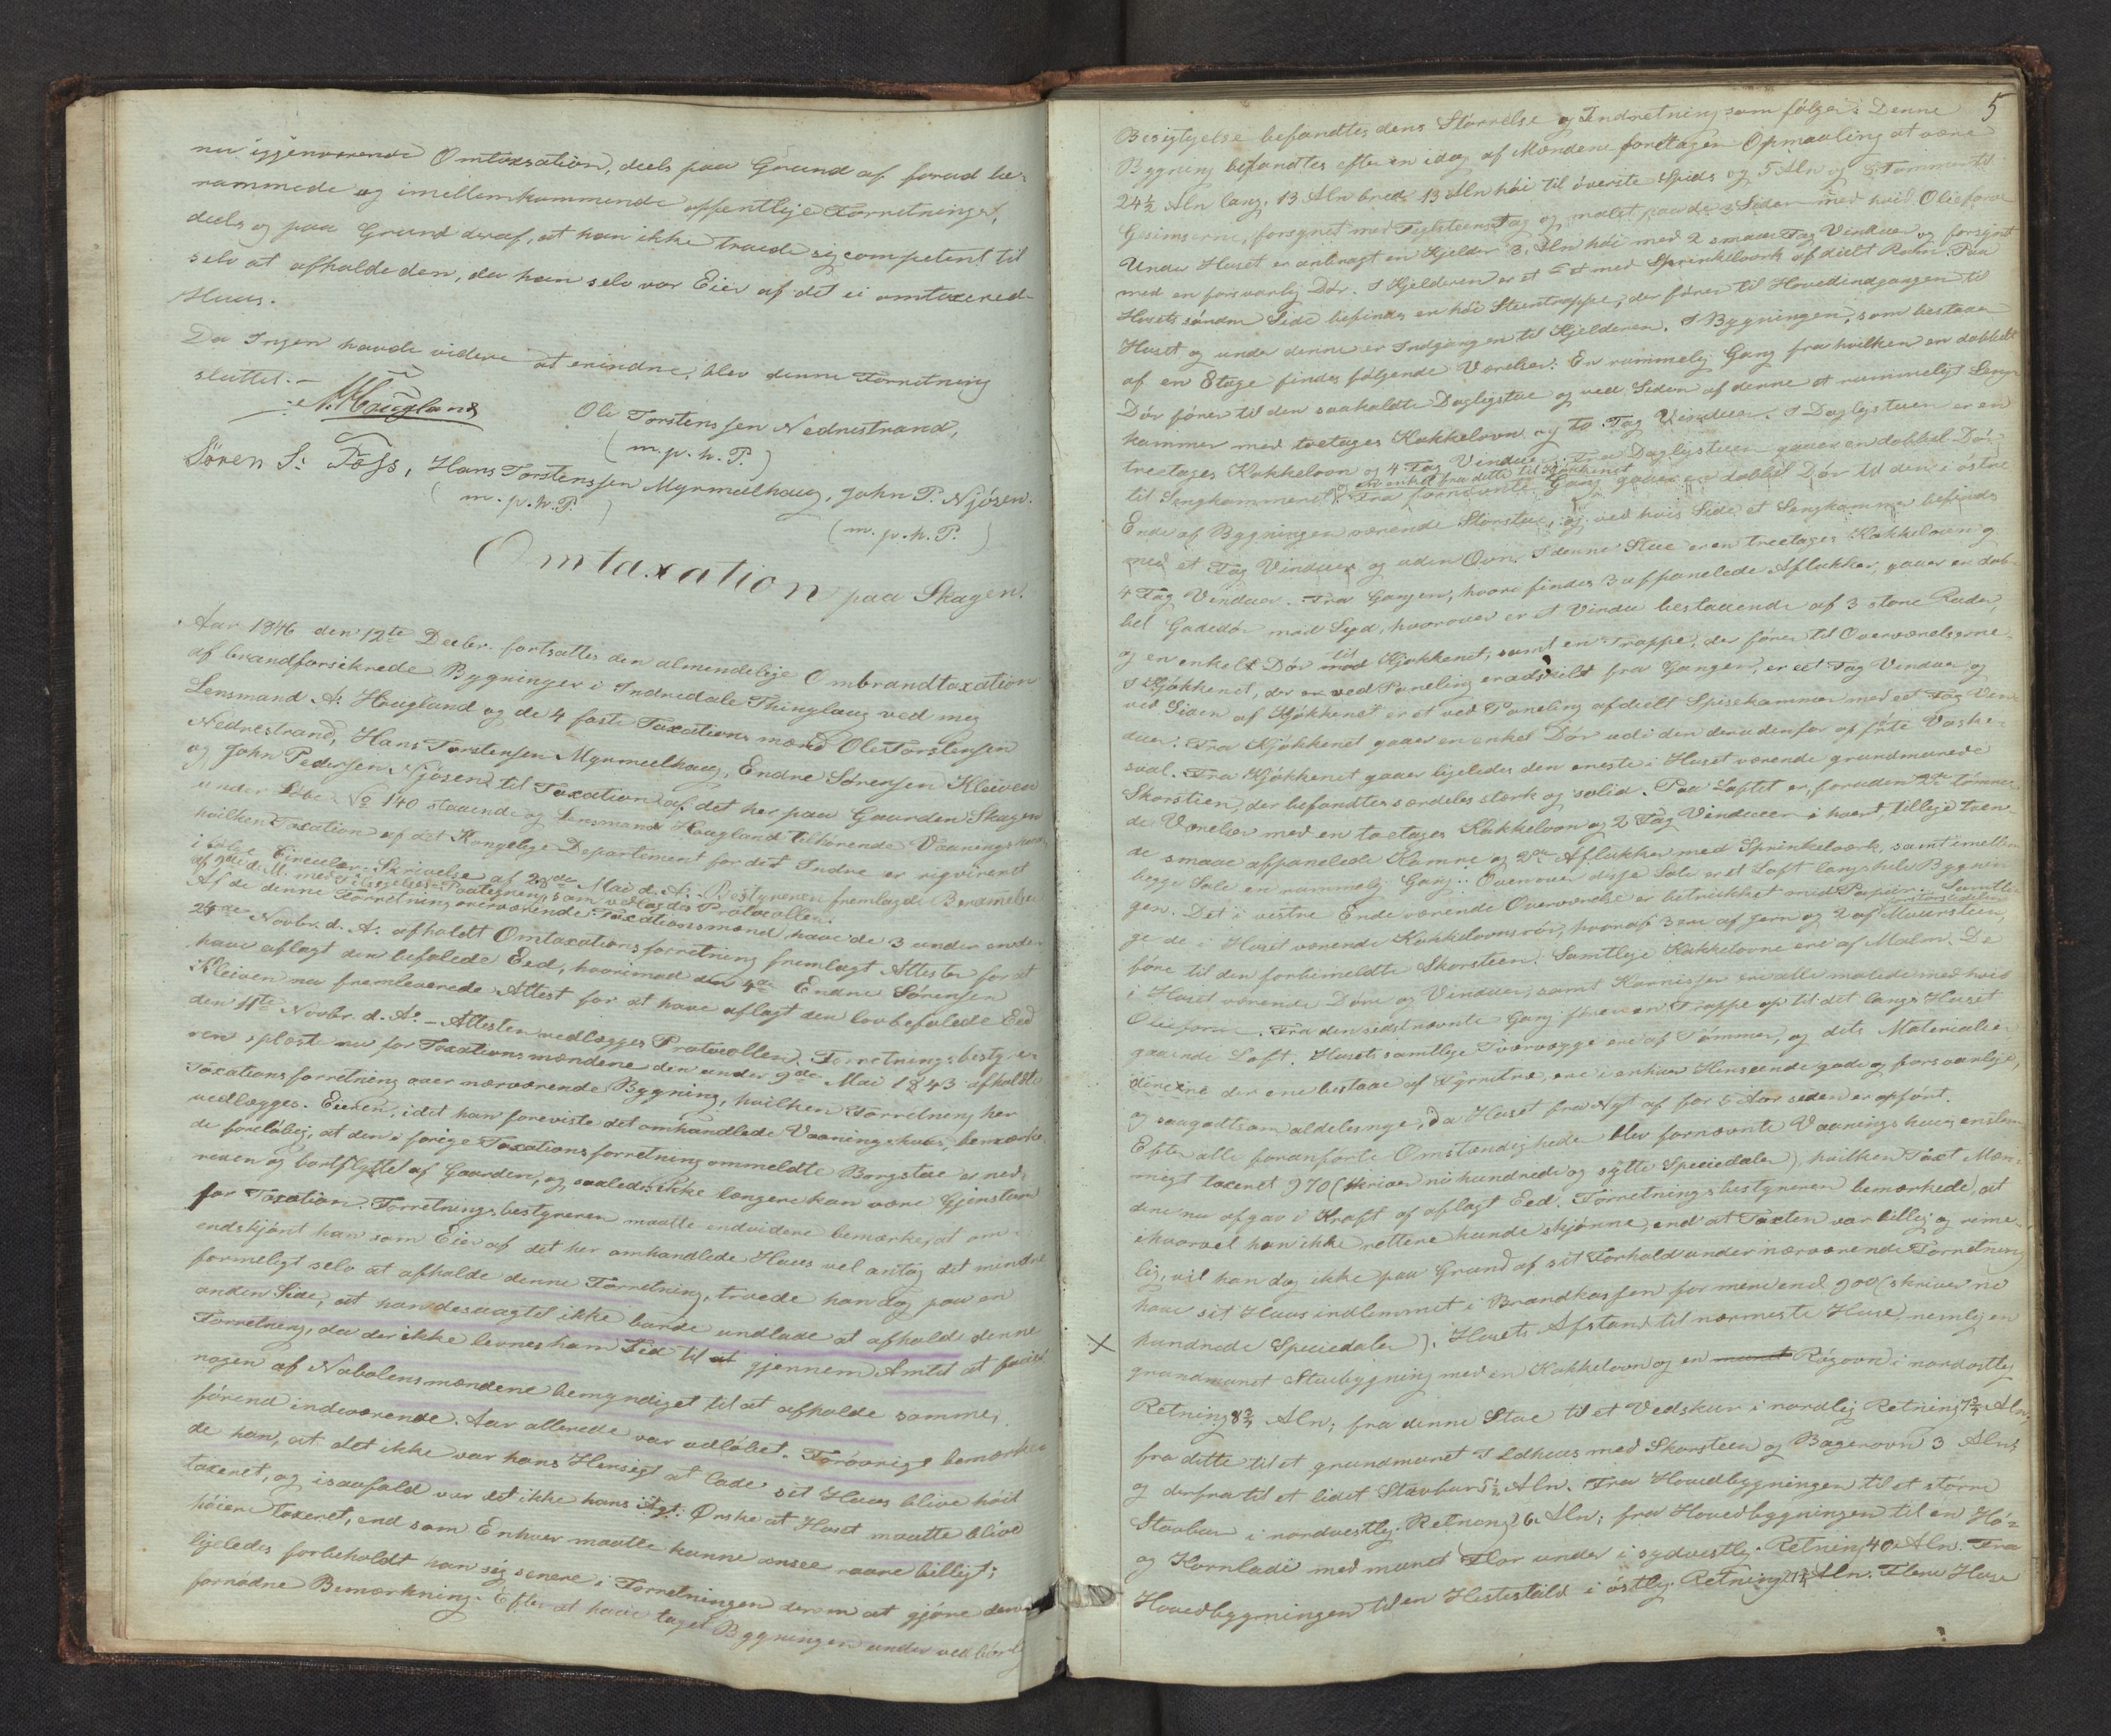 nu iggjenværende Omtaxsation, deels paa Grund af forud be-
rammede og imellemkommende offentlige Forretninger,
deels og paa Grund deraf, at han ikke troede sig competent til
selv at afholde den, da han selv var Eier af det ei omtaxered-
Huus.
Da Ingen havde videre at erindre, blev denne Forretning
sluttet.
A. Hougland
Ole Torstenssen Nedrestrand,
(m. p. h. P.)
Sören S. Foss, Hans Torstenssen Myrmeelhaug, John P. Njösen.
(m. p. h. P.)
(m. p. h. P.)
Omtaxation paa Skagen.
Aar 1846 den 12te Decbr. fortsattes den almindelige Ombrandtaxation
af brandforsikrede Bygninger i Indredale Thinglaug ved mig
Lensmand A. Hougland og de 4 faste Taxationsmænd Ole Torstensen
Nedrestrand, Hans Torstensen Myrmeelhaug, Endre Sørensen Kleiven
og John Pedersen Njösen til Taxation af det her paa Gaarden Skagen
under Löbe No 140 staaende og Lensmand Hougland tilhörende Vaaningshuus
hvilken Taxation af det Kongelige Departement for det Indre er reqvireret
i fölge Circulær-Skrivelse af 28de Mai d. A. Bestyreren fremlagde Berammelse
af 9de d. M. med Tilsigelses-Paategning som vedlagdes Protocollen.
Af de denne Forretning overværende Taxationsmænd have de 3 under en den
24de Novbr. d. A. afholdt Omtaxationsforretning fremlagt Attester for at
have aflagt den befalede Eed, hvorimod den 4de Endre Sørensen
Kleiven nu fremleverede Attest for at have aflagt den lovbefalede Eed
den 11te Novbr. d. A. - Attesten vedlægges Protocollen. Forretningsbesty-
reren oplæste nu for Taxationsmændene den under 9de Mai 1843 afholdte
Taxationsforretning over nærværende Bygning, hvilken Forretning her
vedlægges. Eieren, idet han foreviste det omhandlede Vaaningshuus, bemærke-
de foreløbig, at den i forige Taxationsforretning ommeldte Borgstue er ned-
reven og bortflyttet af Gaarden, og saaledes ikke længere kan være Gjenstand
for Taxation. Forretningsbestyreren maatte endvidere bemærke, at om-
endskjönt han som Eier af det her omhandlede Huus vel antog det mindre
formeligt selv at afholde denne Forretning, troede han dog paa en
anden Side, at han desuagtet ikke burde undlade at afholde denne
Forretning, da der ikke levnes ham Tid til at gjennem Amtet at faae
nogen af Nabolensmændene bemyndiget til at afholde samme,
förend indeværende Aar allerede var udlöbet. Forövrigt bemærke-
de han, at det ikke var hans Hensigt at lade sit Huus blive höit
taxeret, og isaafald var det ikke hans Agt: Ønske at Huset maatte blive
höiere taxeret, end som Enhver maatte kunne ansee være billigt;
ligeledes forbeholdt han sig senere i Forretningen derom at gjöre den
fornödne Bemærkning. Efter at have taget Bygningen under vedbörlig
5
Besigtigelse befandtes dens Størrelse og Indretning som fölger: Denne
Bygning befandtes efter en idag af Mændene foretagen Opmaaling at være
24½ Aln lang, 13 Aln bred, 13 Aln höi til överste Spids og 5 Aln og 5 Tommer til
Gesimserne, forsynet med Teglsteenstag og malet paa de 3 Sider med hvid Oliefarve
Under Huset er anbragt en Kjelder 3 Aln höi med 2 smaae Fag Vinduer og forsynet
med en forsvarlig Dör. I Kjelderen er et med Sprinkelværk afdeelt Rum. Paa
Husets söndre Side befindes en höi Steentrappe, der förer til Hovedindgangen til
Huset og under denne er Indgangen til Kjelderen. I Bygningen, som bestaaer
af en Etage findes fölgende Værelser: En rummelig Gang fra hvilken en dobbelt
Dör förer til den saakaldte Daglistue og ved Siden af denne et rummeligt Senge-
kammer med toetages Kakkelovn og to Fag Vinduer. I Daglistuen er en
treetages Kakkelovn og 4 Fag Vinduer. Fra Daglistuen gaaer en dobbel Dör
til Sengkammeret og en enkel fra dette til Kjökkenet. Fra fornævnte Gang gaaer en dobbel Dör til den i östre
Ende af Bygningen værende Storstue, og ved hvis Side et Sengkammer befindes
med et Fag Vinduer og uden Ovn. I denne Stue er en treetages Kakkelovn og
4 Fag Vinduer. Fra Gangen, hvori findes 3 afpanelede Aflukker, gaaer en dob-
bel Gadedör mod Syd, hvorover er I Vindu bestaaende af 3 store Ruder,
og en enkelt Dör mod til Kjökkenet, samt en Trappe, der förer til Oververelserne.
I Kjökkenet, der er ved Paneling er adskilt fra Gangen, er eet Fag Vinduer og
ved Siden af Kjökkenet er et ved Paneling afdeelt Spisekammer med eet Fag Vin-
duer. Fra Kjökkenet gaaer en enkel Dör ud i den derudenfor opförte Vaske-
sval. Fra Kjökkenet gaaer ligeledes den eneste i Huset værende grundmurede
Skorsteen, der befandtes særdeles stærk og solid. Paa Loftet er, foruden 2de tömre-
de Værelser med en toetages Kakkelovn og 2 Fag Vinduer i hvert, tillige tven-
de smaae afpanelede Kamre og 2de Aflukker med Sprinkelværk, samt imellem
begge Sale en rummelig Gang. Ovenover disse Sale er et Loft langs hele Bygnin-
gen. Det i vestre Ende værende Oververelse er betrukket med Papiir. Samtli-
ge de i Huset værende Kakkelovnsrör, hvoraf 3 ere af Jern og 2 af Muursteen,
före til den forbemeldte Skorsteen. Samtlige Kakkelovne ere af Malm. De
i Huset værende Döre og Vinduer, samt Karnisser ere alle malede med hvid
Oliefarve. Fra den sidstnævnte Gang förer en Trappe op til det langs Huset
gaaende Loft. Husets samtlige Tværvægge ere af Tömmer, og dets Materialier
der ene bestaae af Fyrretræ, ere i enhver Henseende gode og forsvarlige,
og saagodtsom aldeles nye, da Huset fra Nyt af for 5 Aar siden er opfört.
Efter alle foranförte Omstændigheder blev fornævnte Vaaningshuus enstem-
migt taxeret 970 (skriver ni hundrede og sytti Speciedaler), hvilken Taxt Mæn-
dene nu afgav i Kraft af aflagt Eed. Forretningsbestyreren bemærkede, at
ihvorvel han ikke rettere kunde skjönne, end at Taxten var billig og rime-
lig, vil han dog ikke paa Grund af sit Forhold under nærværende Forretning
have sit Huus indlemmet i Brandkassen for mere end 900 (skriver ni
hundrede Speciedaler). Husets Afstand til nærmeste Huse, nemlig en
grundmuret Stuebygning med en Kakkelovn og en muret Rögovn i nordostlig
Retning 8¾ Aln; fra denne Stue til et Vedskur i nordlig Retning 7¾ Aln;
fra dette til et grundmuret Ildhuus med Skorsteen og Bagerovn 3 Aln,
og derfra til et lidet Stavbur 5½ Aln. Fra Hovedbygningen til et större
Stavbur i nordvestlig Retning 16 Aln; fra Hovedbygningen til en Hö-
og Kornlade med muret Flor under i sydvestlig Retning 40 Aln. Fra
Hovedbygningen til en Hestestald i östlig Retning Aln. Flere Huse